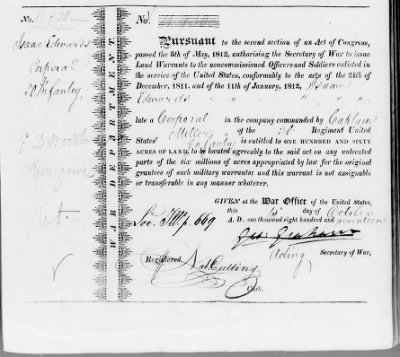 No.
No.
Isaac Edwards
Corporal
Infantry
WAR DEPARTMENT.
Pursuant to the second section of an Act of Congress,
passed the 6th of May, 1812, authorising the Secretary of War to issue
Land Warrants to the noncommissioned Officers and Soldiers enlisted in
the service of the United States, conformably to the acts of the 24th of
December, 1811, and of the 11th of January, 1812, Isaac
Edwards
late a Corporal in the company commanded by Captain
of the Regiment United
States' Infantry is entitled to ONE HUNDRED AND SIXTY
ACRES OF LAND, to be located agreeably to the said act on any unlocated
parts of the six millions of acres appropriated by law for the original
grantees of such military warrants; and this warrant is not assignable
or transferable in any manner whatever.
GIVEN at the War Office of the United States,
this day of October
A. D. one thousand eight hundred and seventeen
Geo: Graham
Acting Secretary of War,
669
Registered Nat Cutting
Clerk.